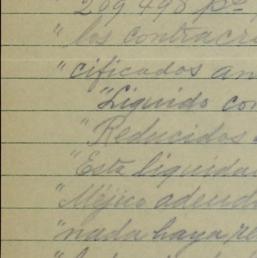 " 209 498 ps
" los contracr
" cificados an
" Liquido con
" Reducidos
" Esta liquida
" Méjico adeud
" nada haya re